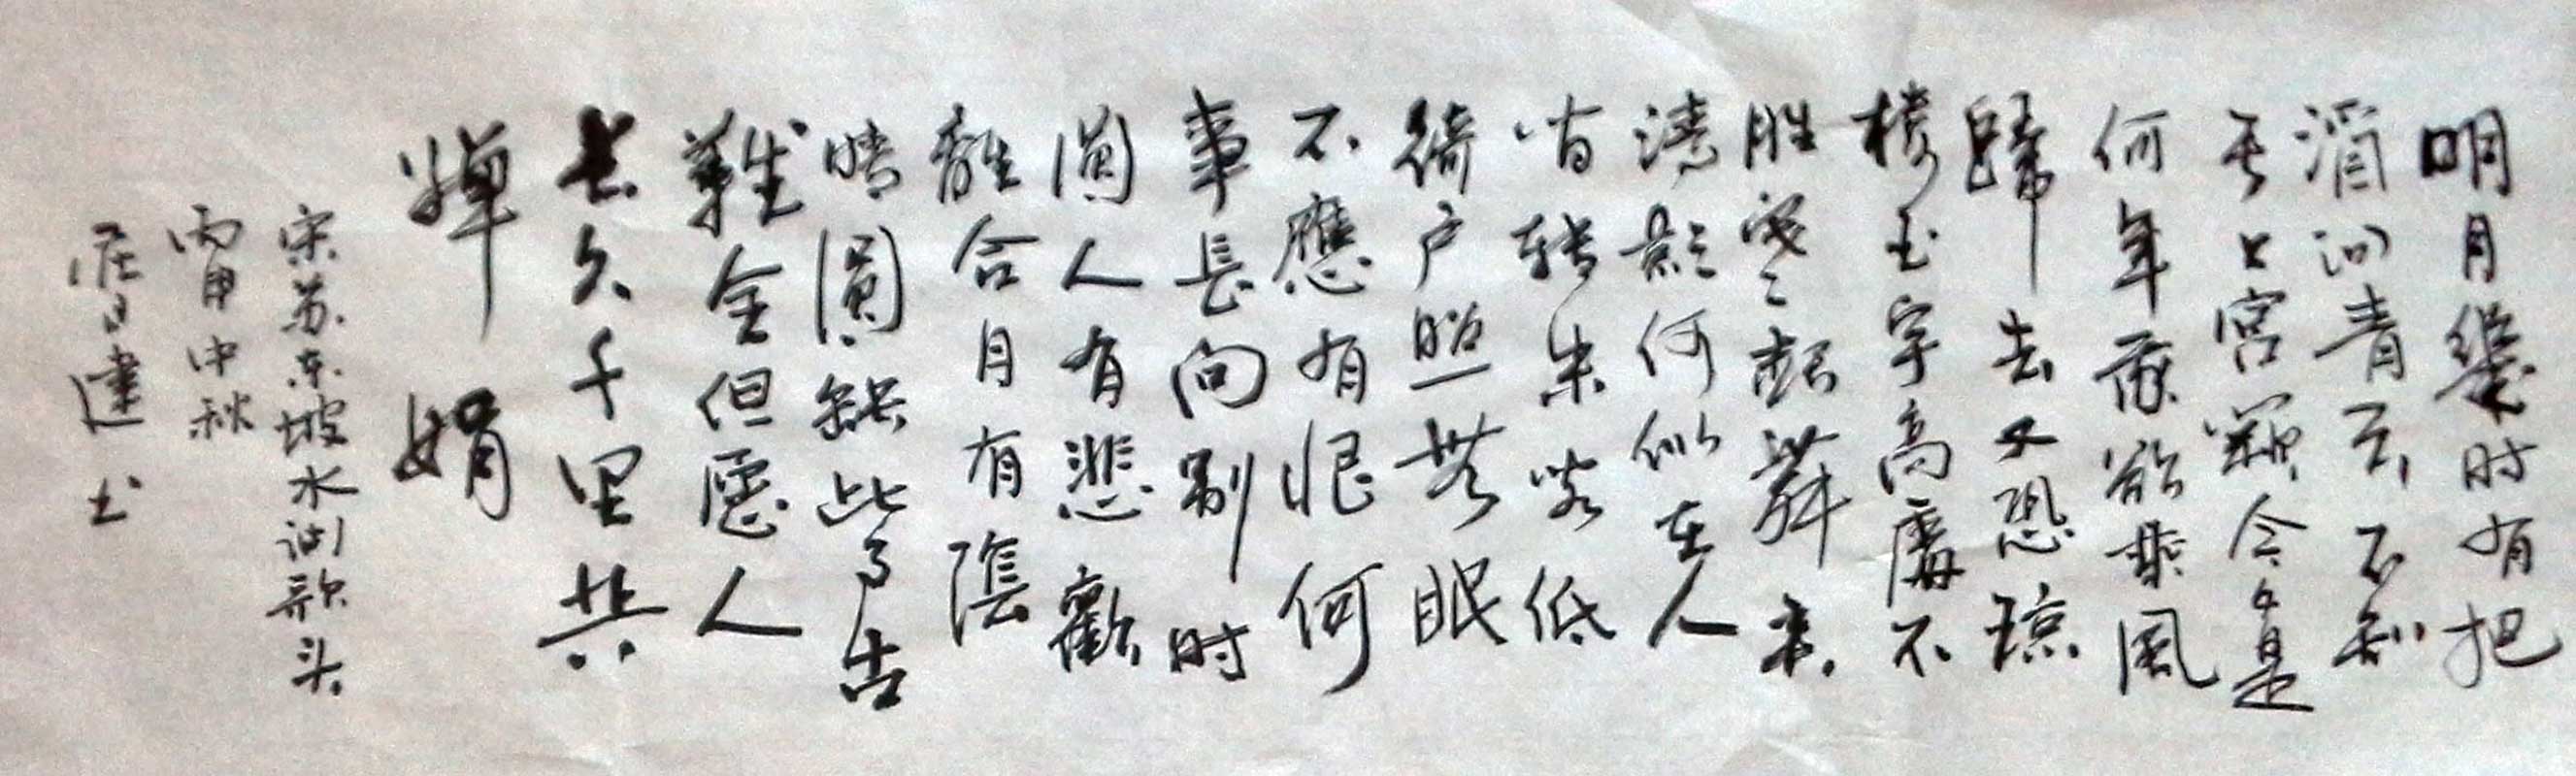 明月幾时有把
酒问青天不知
天上宫闕今夕是
何年我欲乘風
歸去又恐琼
楼玉宇高處不
胜寒起舞弄
清影何似在人
间转朱阁低
绮户照无眠
不應有恨何
事長向别时
圓人有悲歡
離合月有陰
晴圓缺此事古
難全但愿人
长久千里共
嬋娟
宋苏东坡水调歌头
丙申中秋
建书